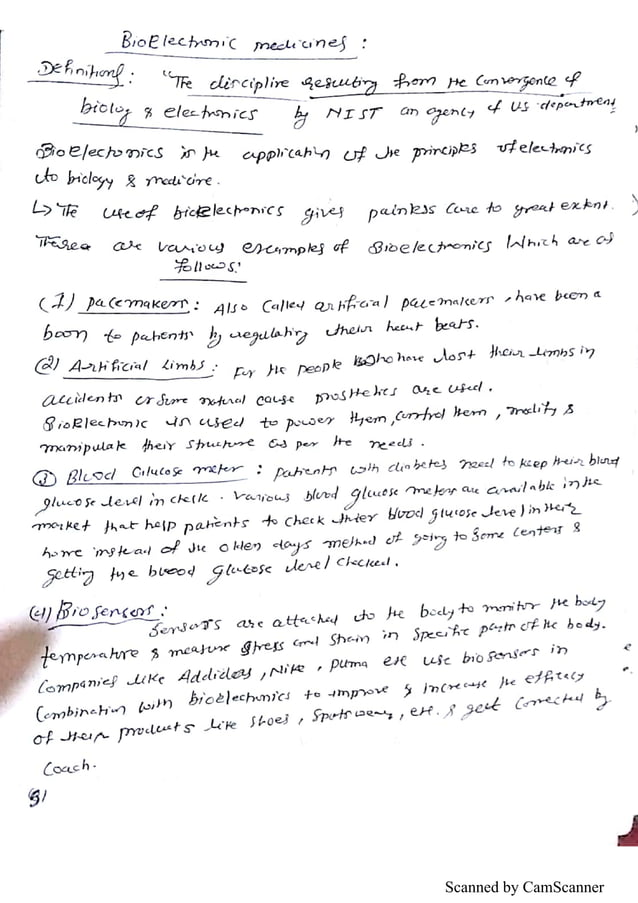 BioElectronic medicines :
Definitions : "The discipline resulting from the convergence of
biolog & electronics by NIST an agency of US department
BioElectonics is the application of the principles of electronics
to biology & medicine.
↳ The use of bioelectronics gives painless cure to great extent.
These are various examples of Bioelectronics which are as
follows:
(1) Pacemakers : Also called artificial pacemakers, have been a
boon to patients by regulating their heart beats.
(2) Artificial Limbs : For the people who have lost their limbs in
accidents or some natural cause prosthetics are used.
BioElectronic is used to power them, control them, modify &
manipulate their structure as per the needs.
(3) Blood Glucose meter : Patients with diabetes need to keep their blood
glucose level in check. Various blood glucose meters are available in the
market that help patients to check thier blood glucose level in their
home instead of the olden days method of going to some centers &
getting the blood glucose level checked.
(4) Biosensors :
Sensors are attached to the body to monitor the body
temperature & measure stress and strain in specific parts of the body.
Companies like Addidas, Nike, Puma etc use biosensors in
combination with bioelectronics to improve & increase the efficacy
of their products like shoes, sportswear, etc. & get corrected by
Coach.
5)
Scanned by CamScanner